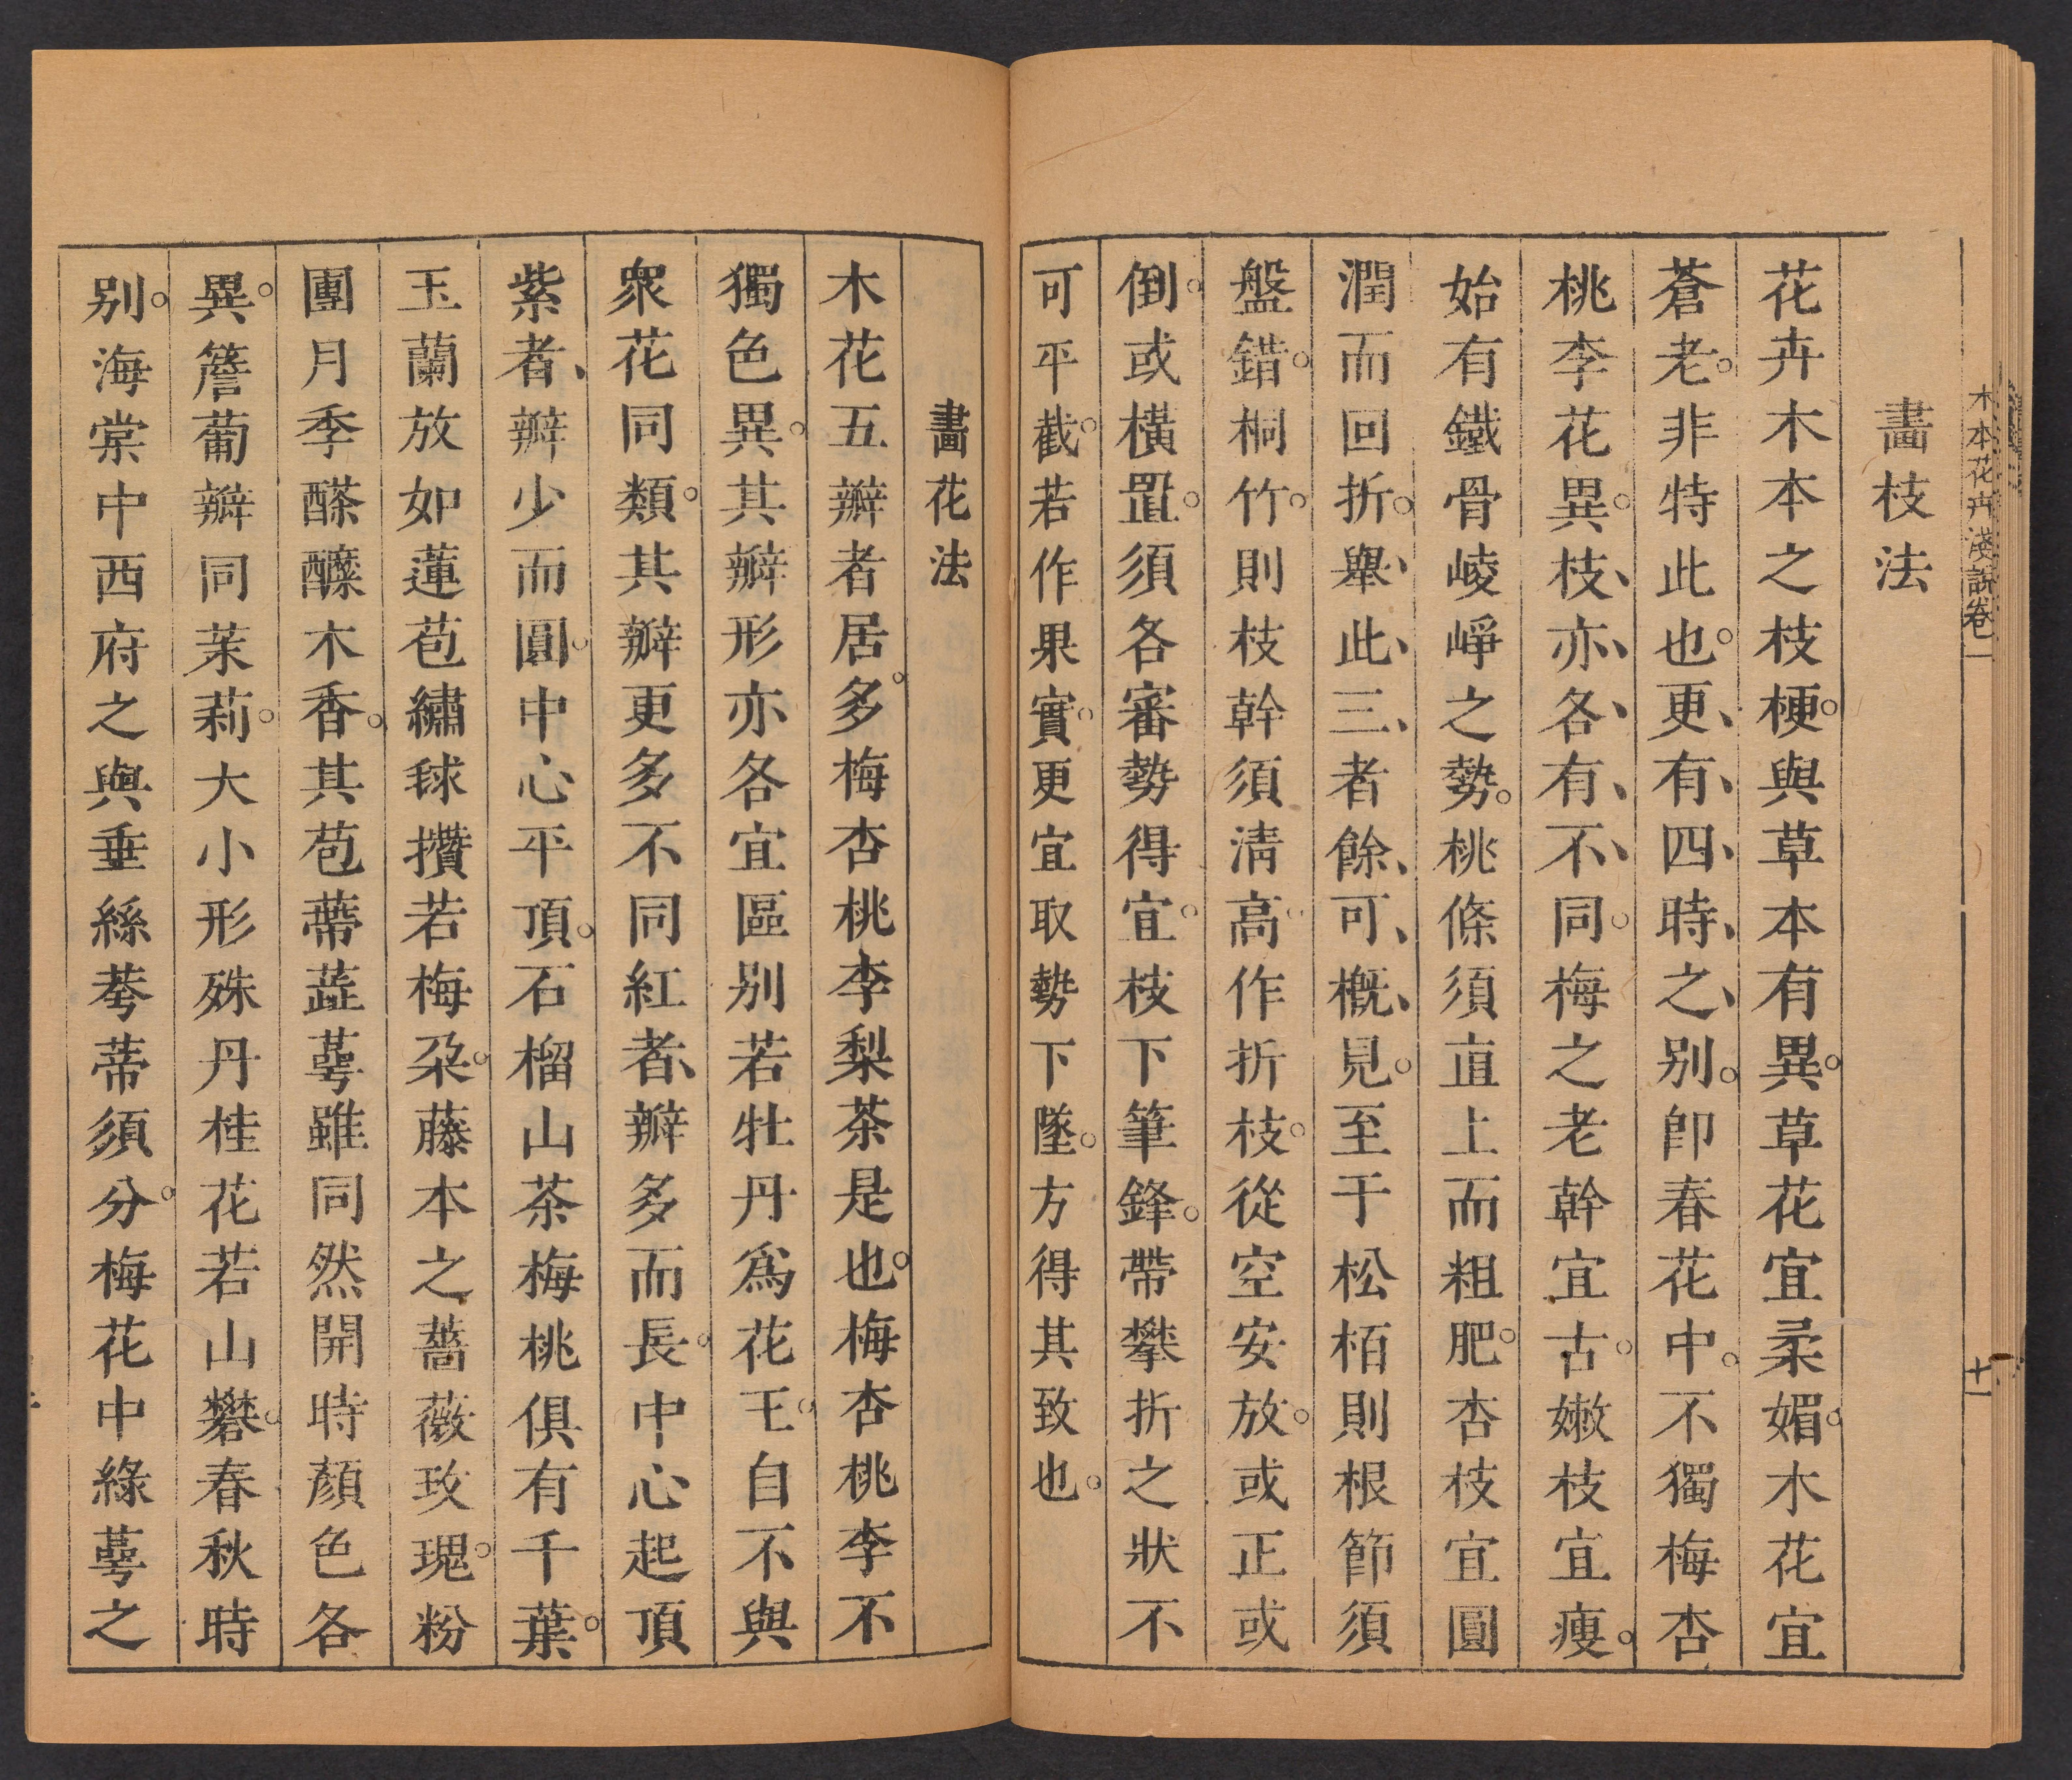 木本花卉淺說卷一
十一
畫枝法
花卉木本之枝梗。與草本有異。草花宜柔媚。木花宜
蒼老。非特此也。更、有、四、時、之、别。卽春花中。不獨梅杏
桃李花異。枝、亦、各、有、不、同。梅之老幹宜古。嫩枝宜瘦。
始有鐵骨崚崢之勢。桃條須直上而粗肥。杏枝宜圓
潤而回折。舉、此、三、者餘、可、槪、見。至于松栢則根節須
盤錯。桐竹。則枝幹須清高。作折枝。從空安放。或正或
倒。或橫置。須各審勢得宜。枝下筆鋒。帶攀折之狀不
可平截。若作果實。更宜取勢下墜。方得其致也。
畫花法
木花五瓣者居多。梅杏桃李梨茶是也。梅杏桃李不
獨色異。其瓣形亦各宜區别若牡丹爲花王。自不與
衆花同類。其瓣更多不同紅者、瓣多而長。中心起頂
紫者、瓣少而圓。中心平頂。石榴山茶梅桃俱有千葉。
玉蘭放如蓮苞繡毬攢若梅朶。藤本之薔薇玫瑰。粉
團月季醿醾木香。其苞蒂蕋萼雖同然開時顏色各
異。簷蔔瓣同茉莉。大小形殊丹桂花若山礬。春秋時
别。海棠中西府之與垂絲萼蒂須分。梅花中綠萼之